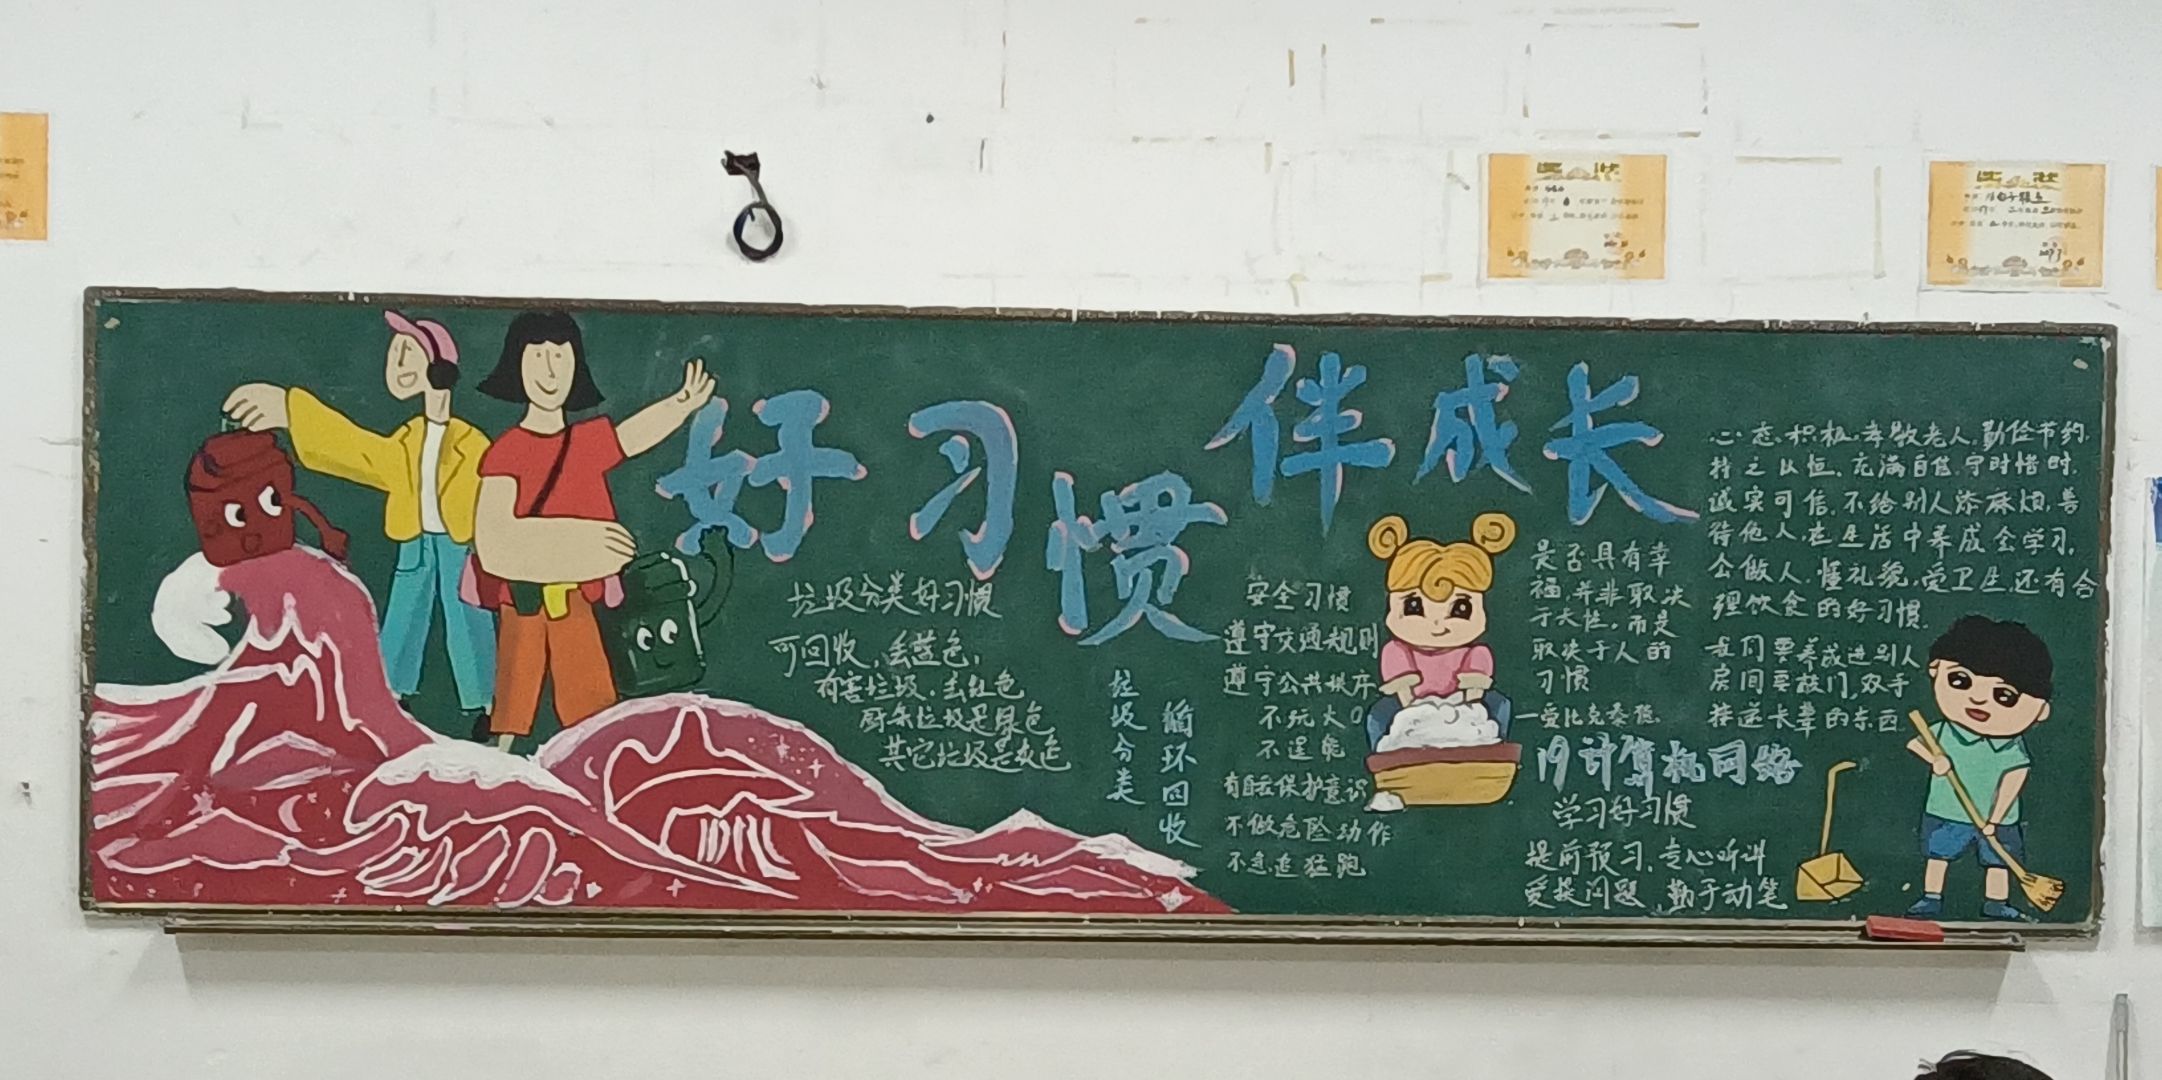 好习惯伴成长
垃圾分类好习惯
可回收,丢蓝色,
有害垃圾,丢红色
厨余垃圾是绿色
其它垃圾是灰色
垃圾分类
循环回收
安全习惯
遵守交通规则
遵守公共秩序
不玩火
不逞能
有自我保护意识
不做危险动作
不急追猛跑
是否具有幸
福,并非取决
于天性,而是
取决于人的
习惯
—爱比克泰德
19计算机网络
学习好习惯
提前预习,专心听讲
爱提问题,勤于动笔
心态积极,孝敬老人,勤俭节约,
持之以恒,充满自信,守时惜时,
诚实可信,不给别人添麻烦,善
待他人,在生活中养成会学习,
会做人,懂礼貌,爱卫生,还有合
理饮食的好习惯.
我们要养成进别人
房间要敲门,双手
接送长辈的东西